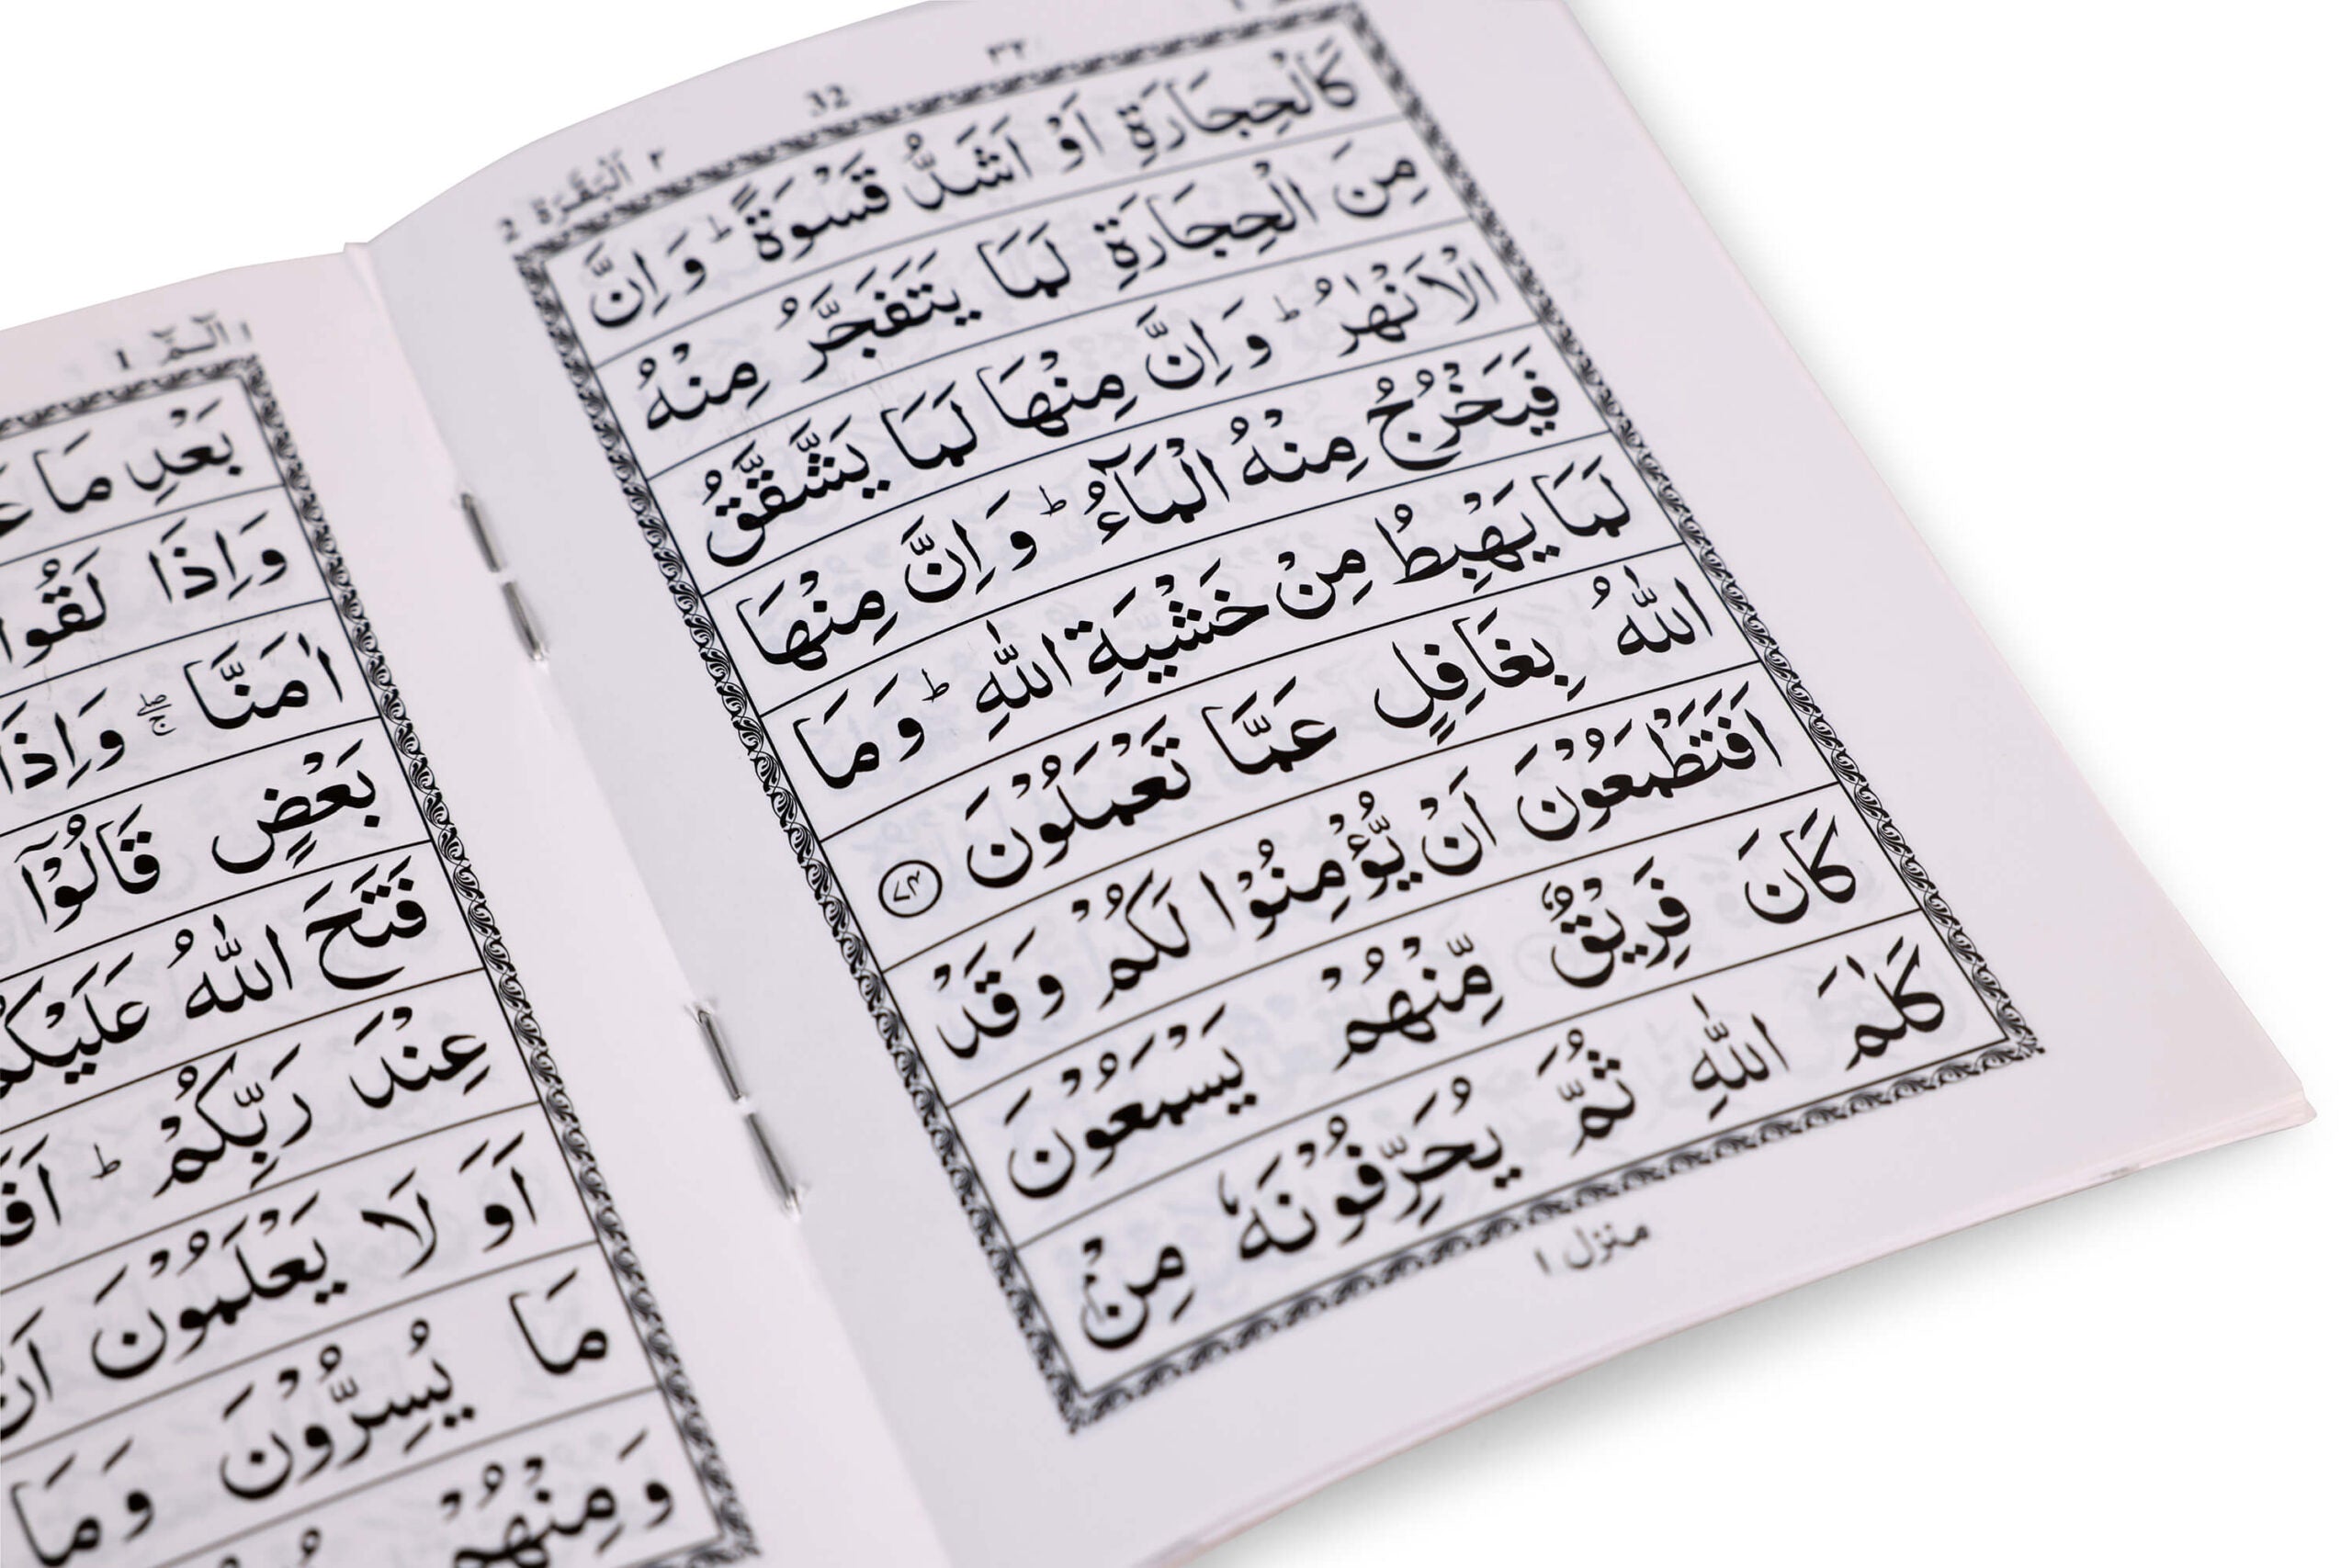 ٣٢
32
٢ اَلْبَقَرَة 2
كَالْحِجَارَةِ اَوْ اَشَدُّ قَسْوَةً ؕ وَ اِنَّ
مِنَ الْحِجَارَةِ لَمَا يَتَفَجَّرُ مِنْهُ
الْاَنْهٰرُ ؕ وَ اِنَّ مِنْهَا لَمَا يَشَّقَّقُ
فَيَخْرُجُ مِنْهُ الْمَآءُ ؕ وَ اِنَّ مِنْهَا
لَمَا يَهْبِطُ مِنْ خَشْيَةِ اللّٰهِ ؕ وَ مَا
اللّٰهُ بِغَافِلٍ عَمَّا تَعْمَلُوْنَ ﴿٧٤﴾
اَفَتَطْمَعُوْنَ اَنْ يُّؤْمِنُوْا لَكُمْ وَ قَدْ
كَانَ فَرِيْقٌ مِّنْهُمْ يَسْمَعُوْنَ
كَلٰمَ اللّٰهِ ثُمَّ يُحَرِّفُوْنَهٗ مِنْ
منزل ١
١ الٓمّٓ 1
بَعْدِ مَا
وَ اِذَا لَقُوا
اٰمَنَّا ۖۚ وَ اِذَا
بَعْضٍ قَالُوْٓا
فَتَحَ اللّٰهُ عَلَيْكُمْ
عِنْدَ رَبِّكُمْ ؕ
اَوَ لَا يَعْلَمُوْنَ
مَا يُسِرُّوْنَ وَ مَا
وَ مِنْهُمْ